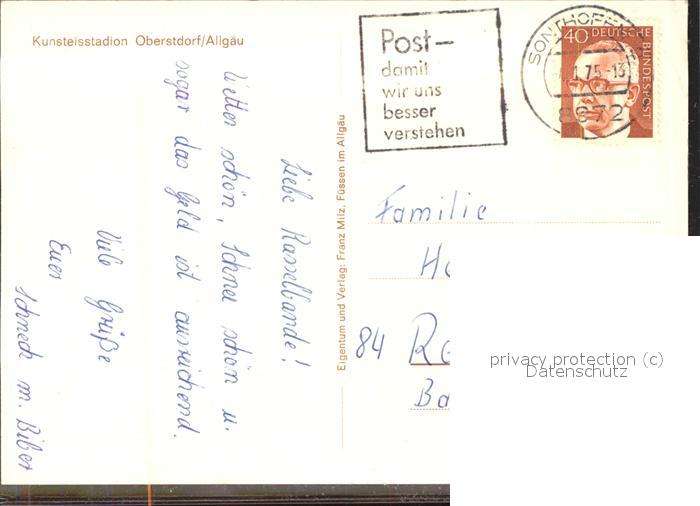 Kunsteisstadion Oberstdorf/Allgäu
Liebe Rasselbande!
Wetter schön, Schnee schön u.
sogar das Geld ist ausreichend.
Viele Grüße
Euer
Schneck m. Biber
Eigentum und Verlag: Franz Milz, Füssen im Allgäu
Post–
damit
wir uns
besser
verstehen
SONTHOFEN
75-13
8972
40 DEUTSCHE
BUNDESPOST
Familie
84
privacy protection (c)
Datenschutz